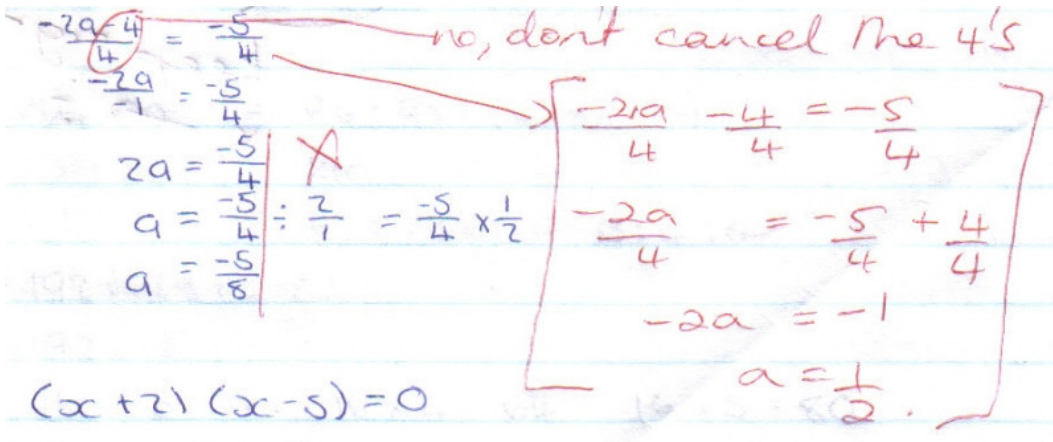 -2a-4/4 = -5/4
no, dont cancel the 4's
-2a/-1 = -5/4
2a = -5/4
a = -5/4 ÷ 2/1 = -5/4 x 1/2
a = -5/8
-2a/4 -4/4 = -5/4
-2a/4 = -5/4 + 4/4
-2a = -1
a = 1/2.
(x+2) (x-5)=0